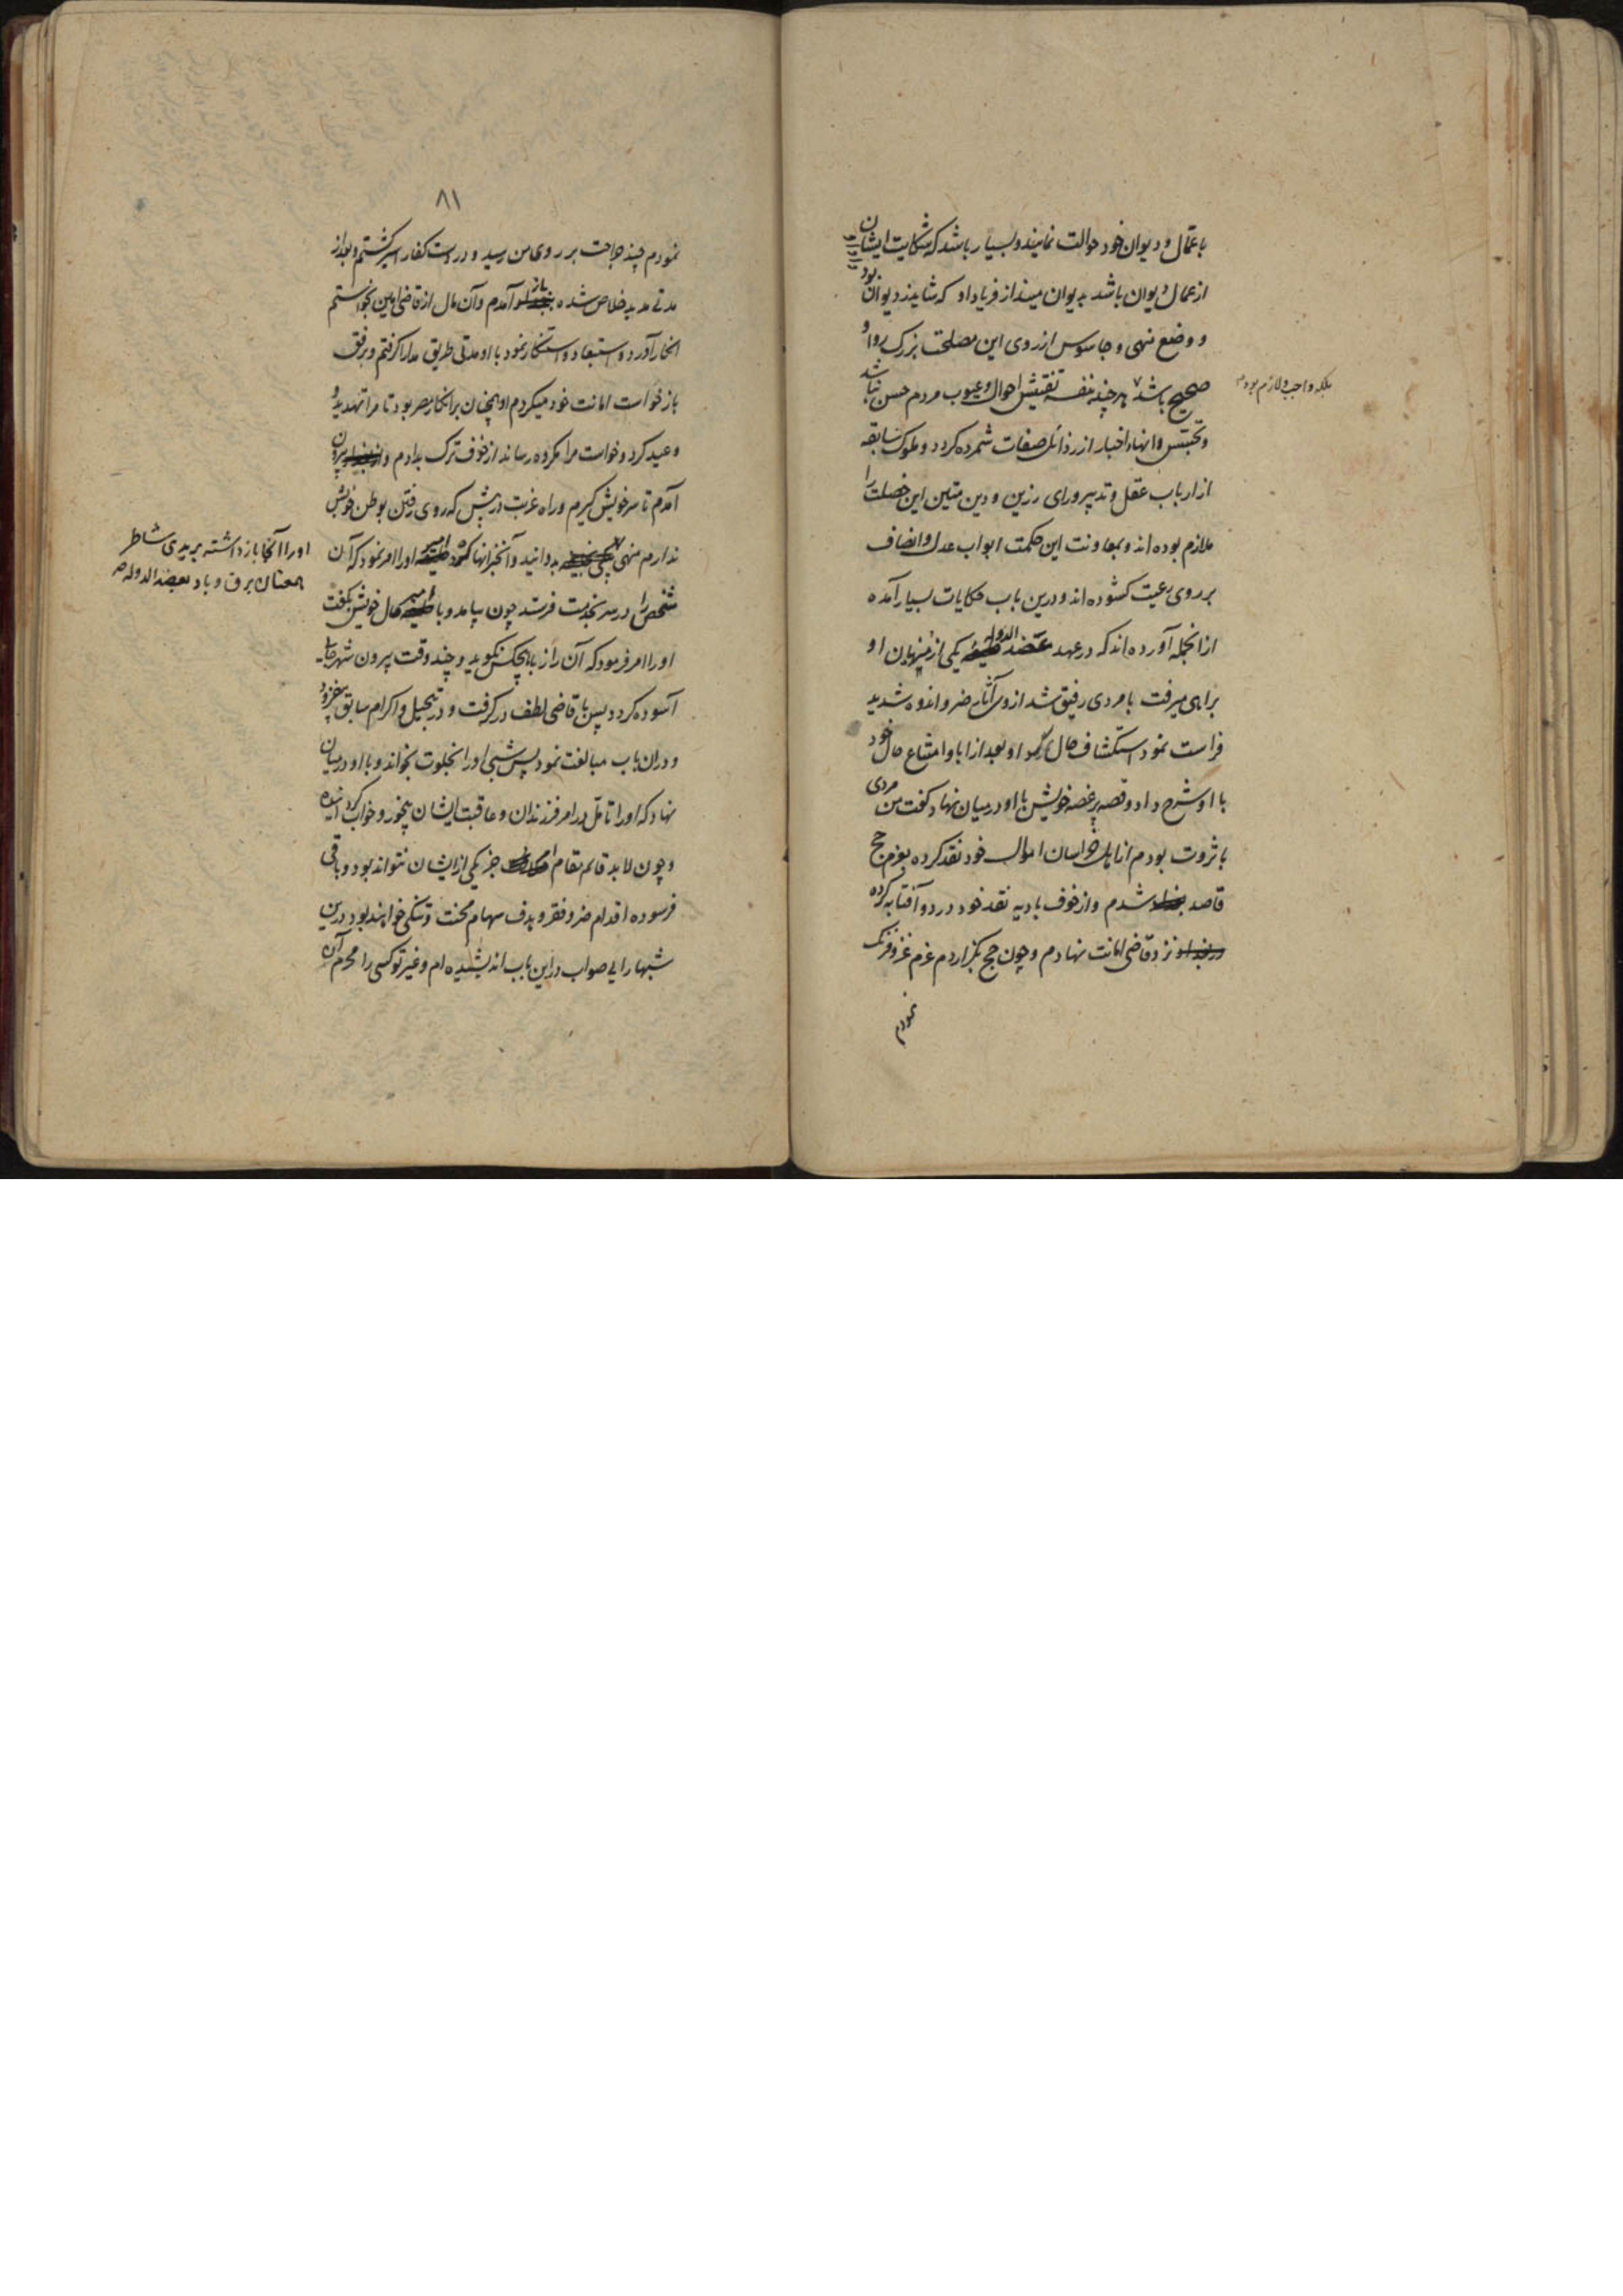 با عمال و دیوان خود حوالت نمایند و بسیار باشد که شکایت ایشان
از عمال دیوان باشد بدیوان میند از فریاد او که شاید ز دیوان بود
و وضع منهی و جاسوس از روی این مصلحت بزرگ روا و
صحیح باشد هر چند بنفسه تفتیش احوال و عیوب مردم حسن نباشد
بلکه واجب و لازم بود
و تجسس و انهاء اخبار از رذائل صفات شمرده گردد و ملوک سابقه
از ارباب عقل و تدبیر و رای رزین و دین متین این خصلت را
ملازم بوده اند و بمعاونت این حکمت ابواب عدل و انصاف
بر روی رعیت گشوده اند و درین باب حکایات بسیار آمده
از انجمله آورده اند که در عهد عضد الدوله خلیفه یکی از منهیان او
براهی میرفت با مردی رفیق شد از وی آثار ضر و اندوه شدید
فراست نمود استکشاف حال او بعد از ابا و امتناع حال خود
با او شرح داد و قصه پر غصه خویش با او در میان نهاد گفت من مردی
با ثروت بودم از اهل خراسان اموال خود نقد کرده بعزم حج
قاصد بغداد شدم و از خوف بادیه نقد خود در دو آفتابه کرده
در بغداد نزد قاضی امانت نهادم و چون حج بگزاردم عزم غزو فرنگ
نمودم
۸۱
نمودم چند جراحت بر روی من رسید و در دست کفار اسیر گشتم و بعد از
مدتی مدید خلاص شده بغداد باز آمدم و آن مال از قاضی امین بخواستم
انکار آورد و استبعاد و استنکار نمود با او مدتی طریق مدارا گرفتم و برفق
باز خواست امانت خود میکردم او همچنان بر انکار مصر بود تا مرا تهدید و
وعید کرد و خواست مرا مکروه رساند از خوف ترک بدادم و از بغداد بیرون
آمدم تا سر خویش گیرم و راه غربت در پیش که روی رفتن بوطن خویش
ندارم منهی بدوانید و آنخبر انها خلیفه امیر او را امر نمود که آن
او را آنجا باز داشته بریدی شاطر
همعنان برق و باد بعضد الدوله
شخص را در سر بخدمت فرستد چون بیامد و با خلیفه امیر حال خویش بگفت
او را امر فرمود که آن راز با هیچکس نگوید و چند وقت بیرون شهر
آسوده گردد پس با قاضی لطف در گرفت و در تبجیل و اکرام سابق بیفزود
و در آن باب مبالغت نمود پس شبی او را بخلوت بخواند و با او در میان
نهاد که او را تامل در امر فرزندان و عاقبت ایشان بیخور و خواب کرد
و چون لابد قائم مقام جز یکی از ایشان نتواند بود و باقی
فرسوده اقدام ضر و فقر و هدف سهام محنت و تنگی خواهند بود درین
شبها رایی صواب در این باب اندیشیده ام و غیر تو کسی را محرم آن